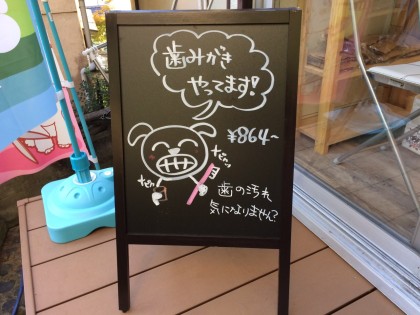 歯みがき
やってます!
¥864~
歯の汚れ
気になりません?